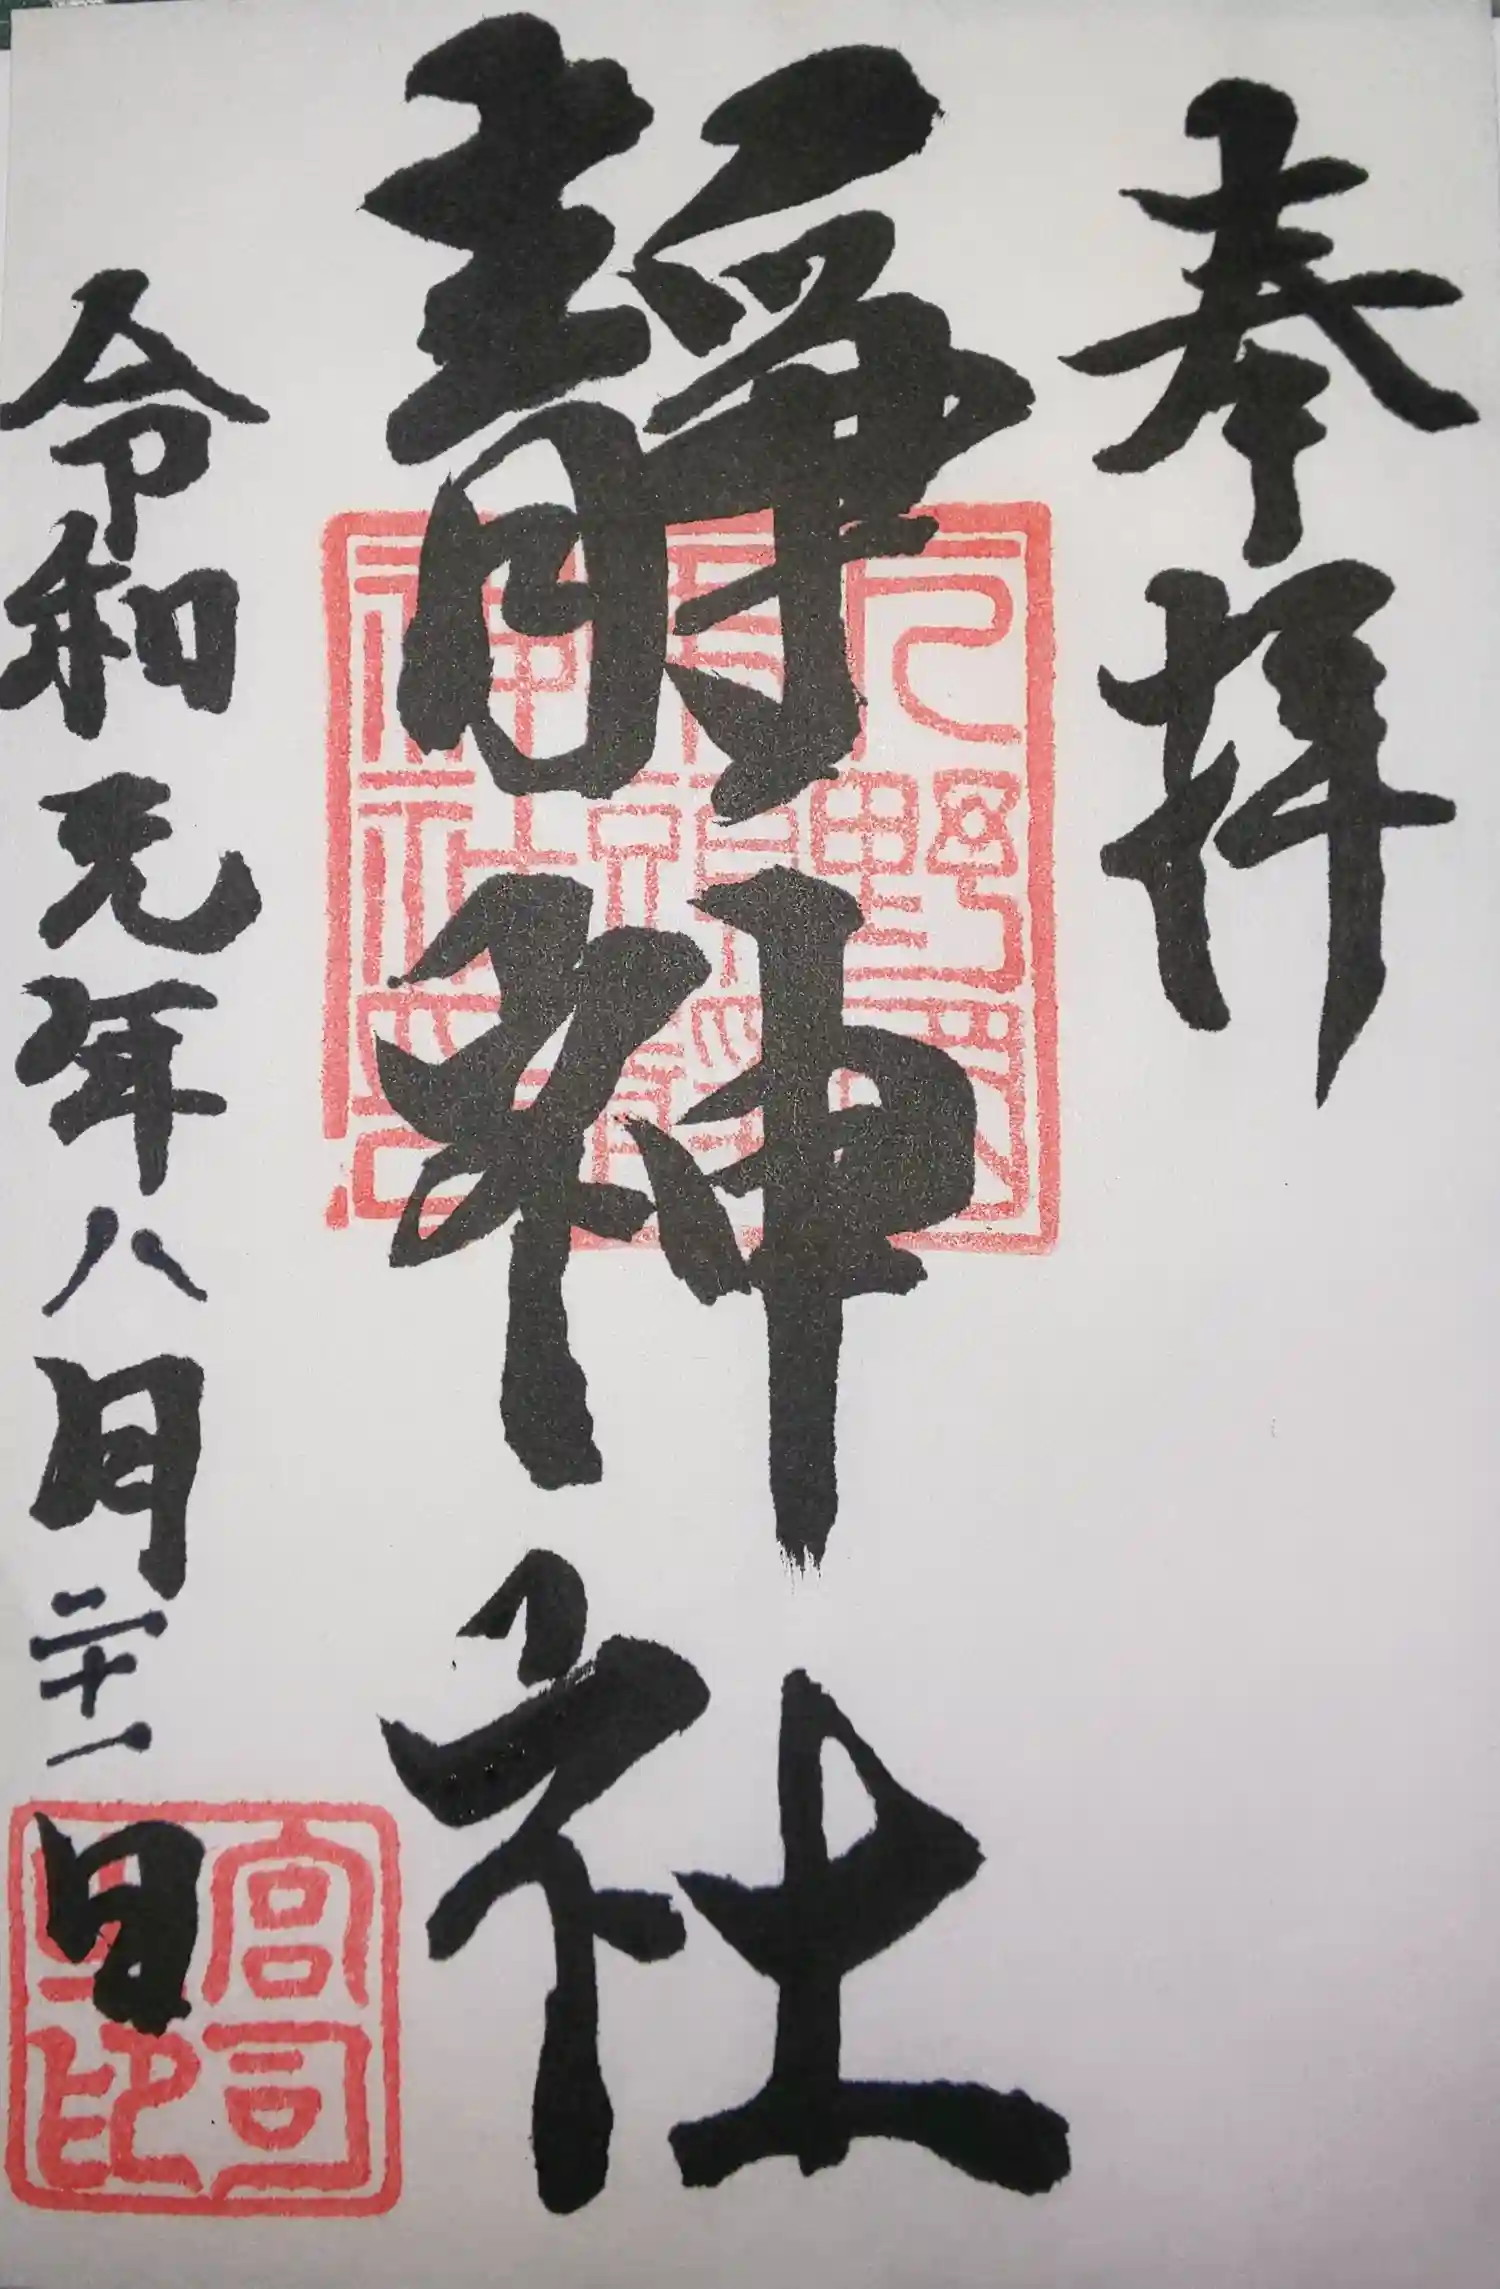 奉拝
静神社
令和元年八月二十一日
宮司之印